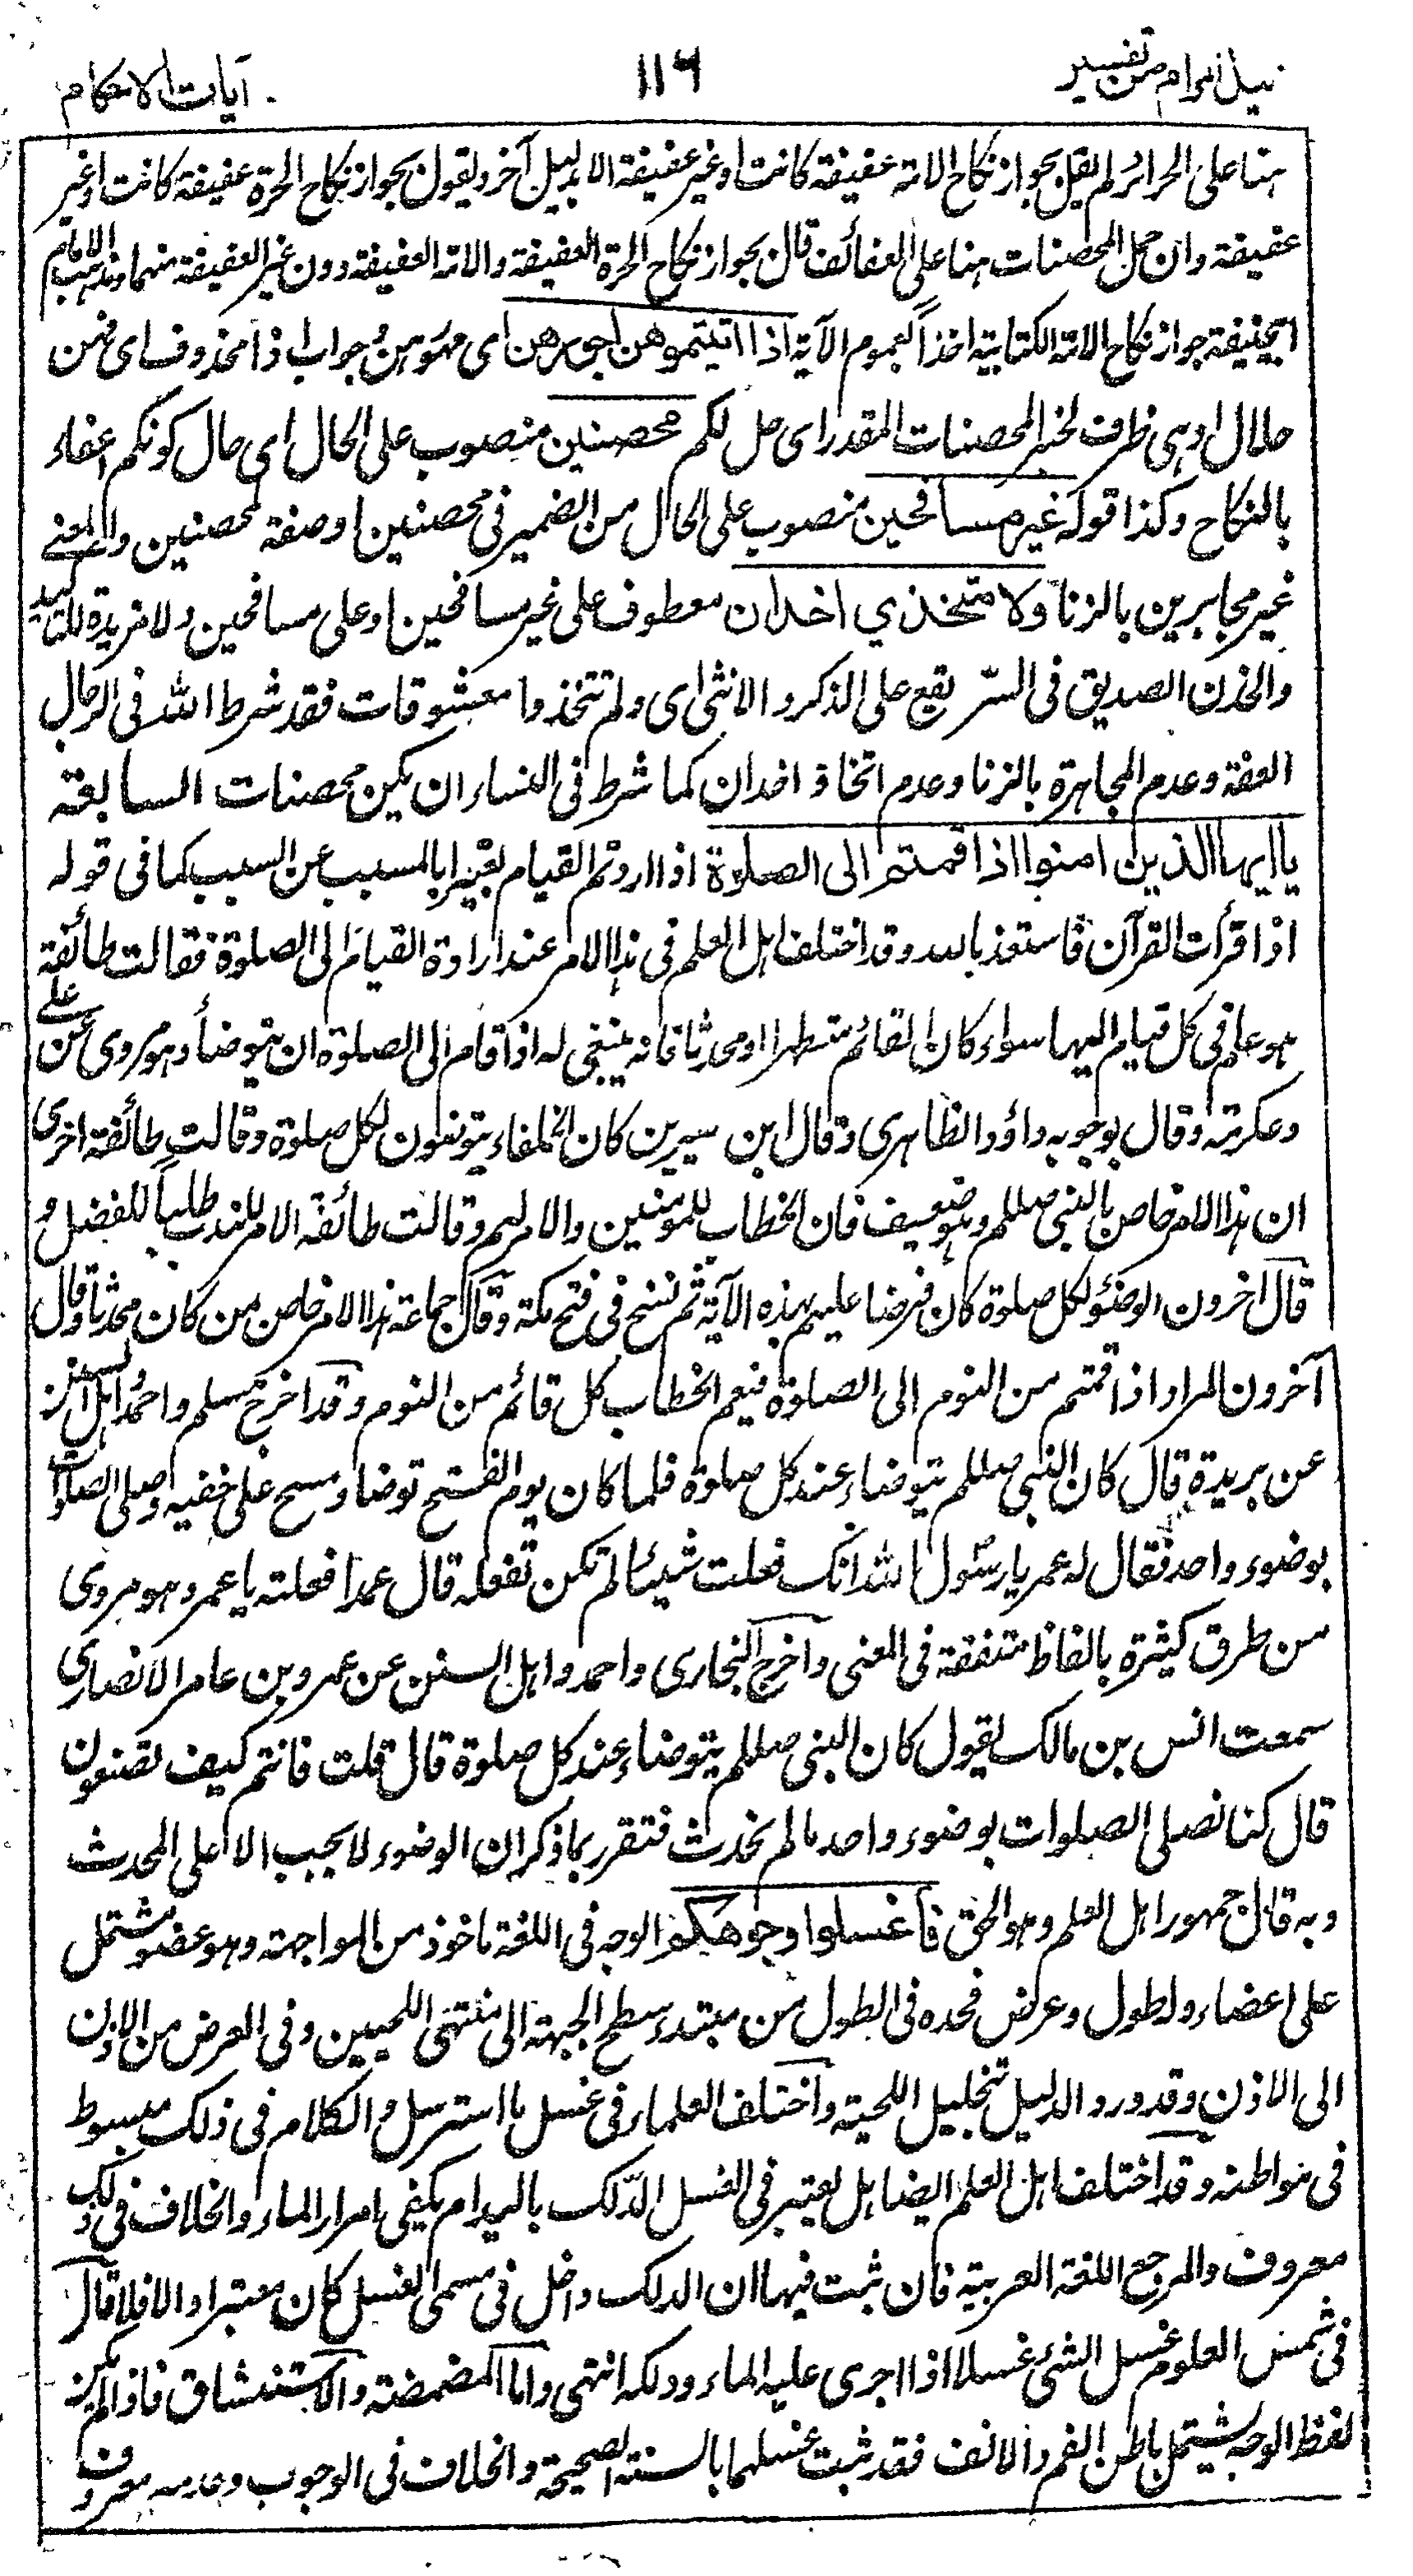 نيل المرام من تفسير
١١٦
آيات الاحكام
هنا على الحرائر لم يقل بجواز نكاح الامة عفيفة كانت او غير عفيفة الا بدليل آخر ويقول بجواز نكاح الحرة عفيفة كانت او غير
عفيفة وان حمل المحصنات هنا على العفائف قال بجواز نكاح الحرة العفيفة والامة العفيفة دون غير العفيفة منهما ومذهب الامام
ابيحنيفة جواز نكاح الامة الكتابية اخذاً بعموم الآية اذا اتيتموهن اجورهن اى مهورهن وجواب اذا محذوف اى فهن
حلال او هى ظرف لخبر المحصنات المقدر اى حل لكم محصنين منصوب على الحال اى حال كونكم اعفاء
بالنكاح وكذا قوله غير مسافحين منصوب على الحال من الضمير فى محصنين او صفة لمحصنين والمعنے
غير مجاهرين بالزنا ولا متخذي اخدان معطوف على غير مسافحين او على مسافحين ولا مزيدة للتاكيد
والخدن الصديق فى السرّ يقع على الذكر والانثى اى ولم تتخذوا معشوقات فقد شرط الله فى الرجال
العفة وعدم المجاهرة بالزنا وعدم اتخاذ اخدان كما شرط فى النساء ان يكن محصنات السابعة
ياايها الذين امنوا اذا قمتم الى الصلوة اذا اردتم القيام تعبيرا بالمسبب عن السبب كما فى قوله
اذا قرأت القرآن فاستعذ بالله وقد اختلف اهل العلم فى هذا الامر عند ارادة القيام الى الصلوة فقالت طائفة
هو عام فى كل قيام اليها سواء كان القائم متطهرا او محدثا فانه ينبغى له اذا قام الى الصلوة ان يتوضأ وهو مروى عن علے
وعكرمة وقال بوجوبه داؤد الظاهرى وقال ابن سيرين كان الخلفاء يتوضون لكل صلوة وقالت طائفة اخرى
ان هذا الامر خاص بالنبى صللم وهو ضعيف فان الخطاب للمومنين والامر لهم وقالت طائفة الامر للندب طلباً للفضل و
قال آخرون الوضوء لكل صلوة كان فرضا عليهم بهذه الآية ثم نسخ فى فتح مكة وقال جماعة هذا الامر خاص بمن كان محدثا وقال
آخرون المراد اذا قمتم من النوم الى الصلوة فيعم الخطاب كل قائم من النوم وقد اخرج مسلم واحمد واهل السنن
عن بريدة قال كان النبى صللم يتوضاء عند كل صلوة فلما كان يوم الفتح توضا ومسح على خفيه وصلى الصلوات
بوضوء واحد فقال له عمر يا رسول الله انك فعلت شيئا لم تكن تفعله قال عمدا فعلته يا عمر وهو مروى
من طرق كثيرة بالفاظ متفقة فى المعنى واخرج البخارى واحمد واهل السنن عن عمرو بن عامر الانصارى
سمعت انس بن مالك يقول كان النبى صللم يتوضاء عند كل صلوة قال قلت فانتم كيف تصنعون
قال كنا نصلى الصلوات بوضوء واحد ما لم نحدث فتقرر بما ذكر ان الوضوء لا يجب الا على المحدث
وبه قال جمهور اهل العلم وهو الحق فاغسلوا وجوهكم الوجه فى اللغة ماخوذ من المواجهة وهو عضو مشتمل
على اعضاء وله طول وعرض فحده فى الطول من مبتدء سطح الجبهة الى منتهى اللحيين وفى العرض من الاذن
الى الاذن وقد ورد الدليل بتخليل اللحية واختلف العلماء فى غسل ما استرسل والكلام فى ذلك مبسوط
فى مواطنه وقد اختلف اهل العلم ايضا هل يعتبر فى الغسل الدّلك باليد ام يكفى امرار الماء والخلاف فى ذلك
معروف والمرجع اللغة العربية فان ثبت فيها ان الدلك داخل فى مسمى الغسل كان معتبرا والا فلا قال
فى شمس العلوم غسل الشئ غسلا اذا اجرى عليه الماء ودلكه انتهى واما المضمضة والاستنشاق فاذا لم يكن
لفظ الوجه يشتمل باطن الفم والانف فقد ثبت غسلهما بالسنة الصحيحة والخلاف فى الوجوب وعدمه معروف